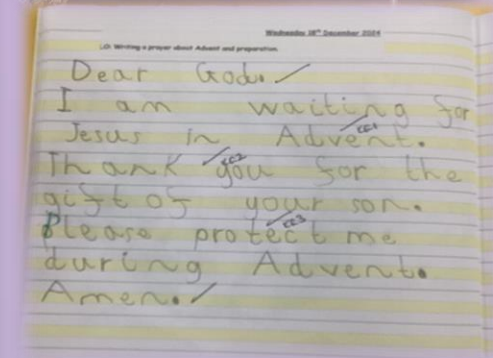 Wednesday 18th December 2024
LO: Writing a prayer about Advent and preparation.
Dear God.
I am waiting for
Jesus in Advent.
Thank you for the
gift of your son.
Please protect me
during Advent.
Amen.